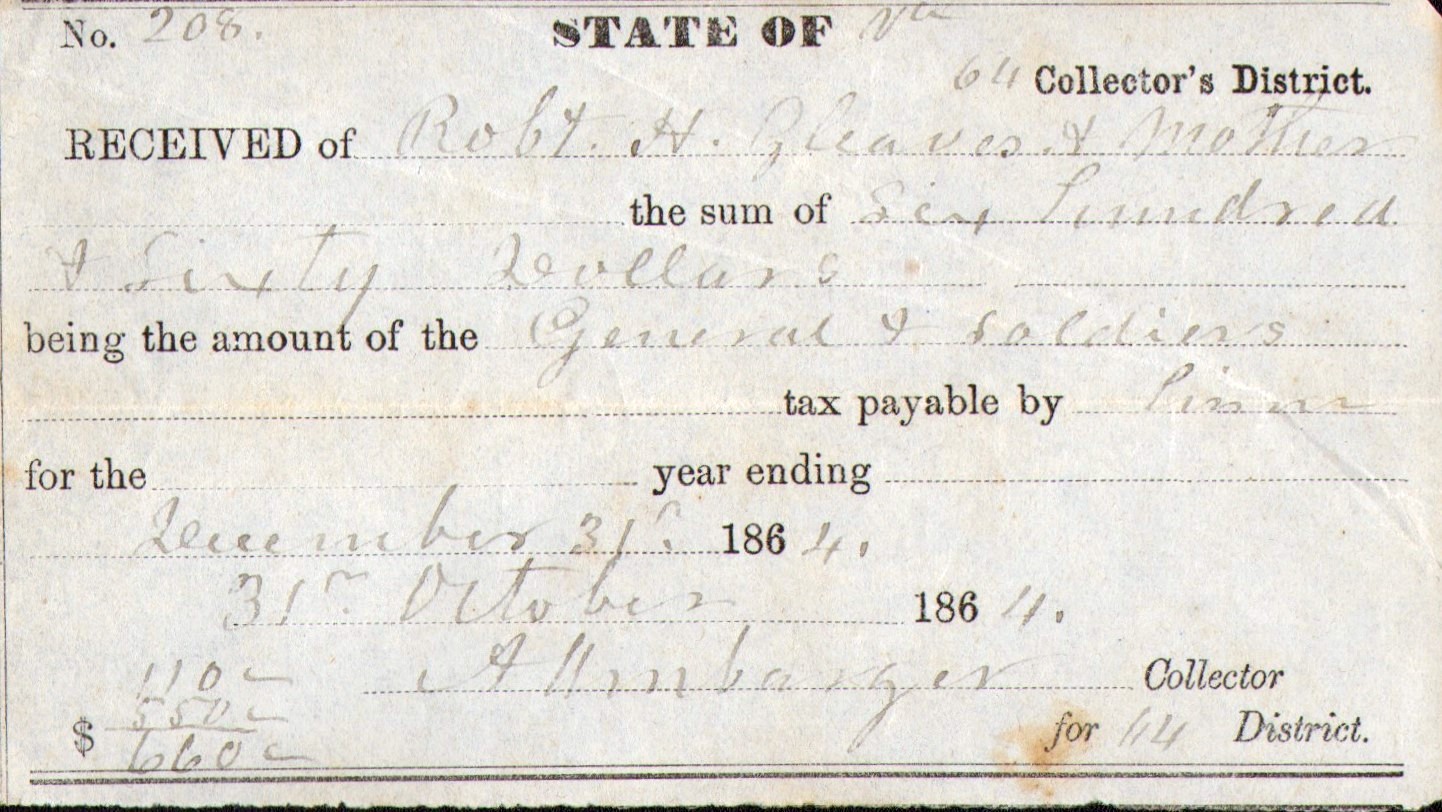 No. 208. STATE OF Va
64 Collector's District.
RECEIVED of Robt. H. Gleaves & Mother
the sum of Six Hundred
& Sixty Dollars
being the amount of the General & Soldiers
tax payable by
for the year ending
December 31st 1864.
31st October 1864.
110 Collector
550
$ 660 for 64 District.